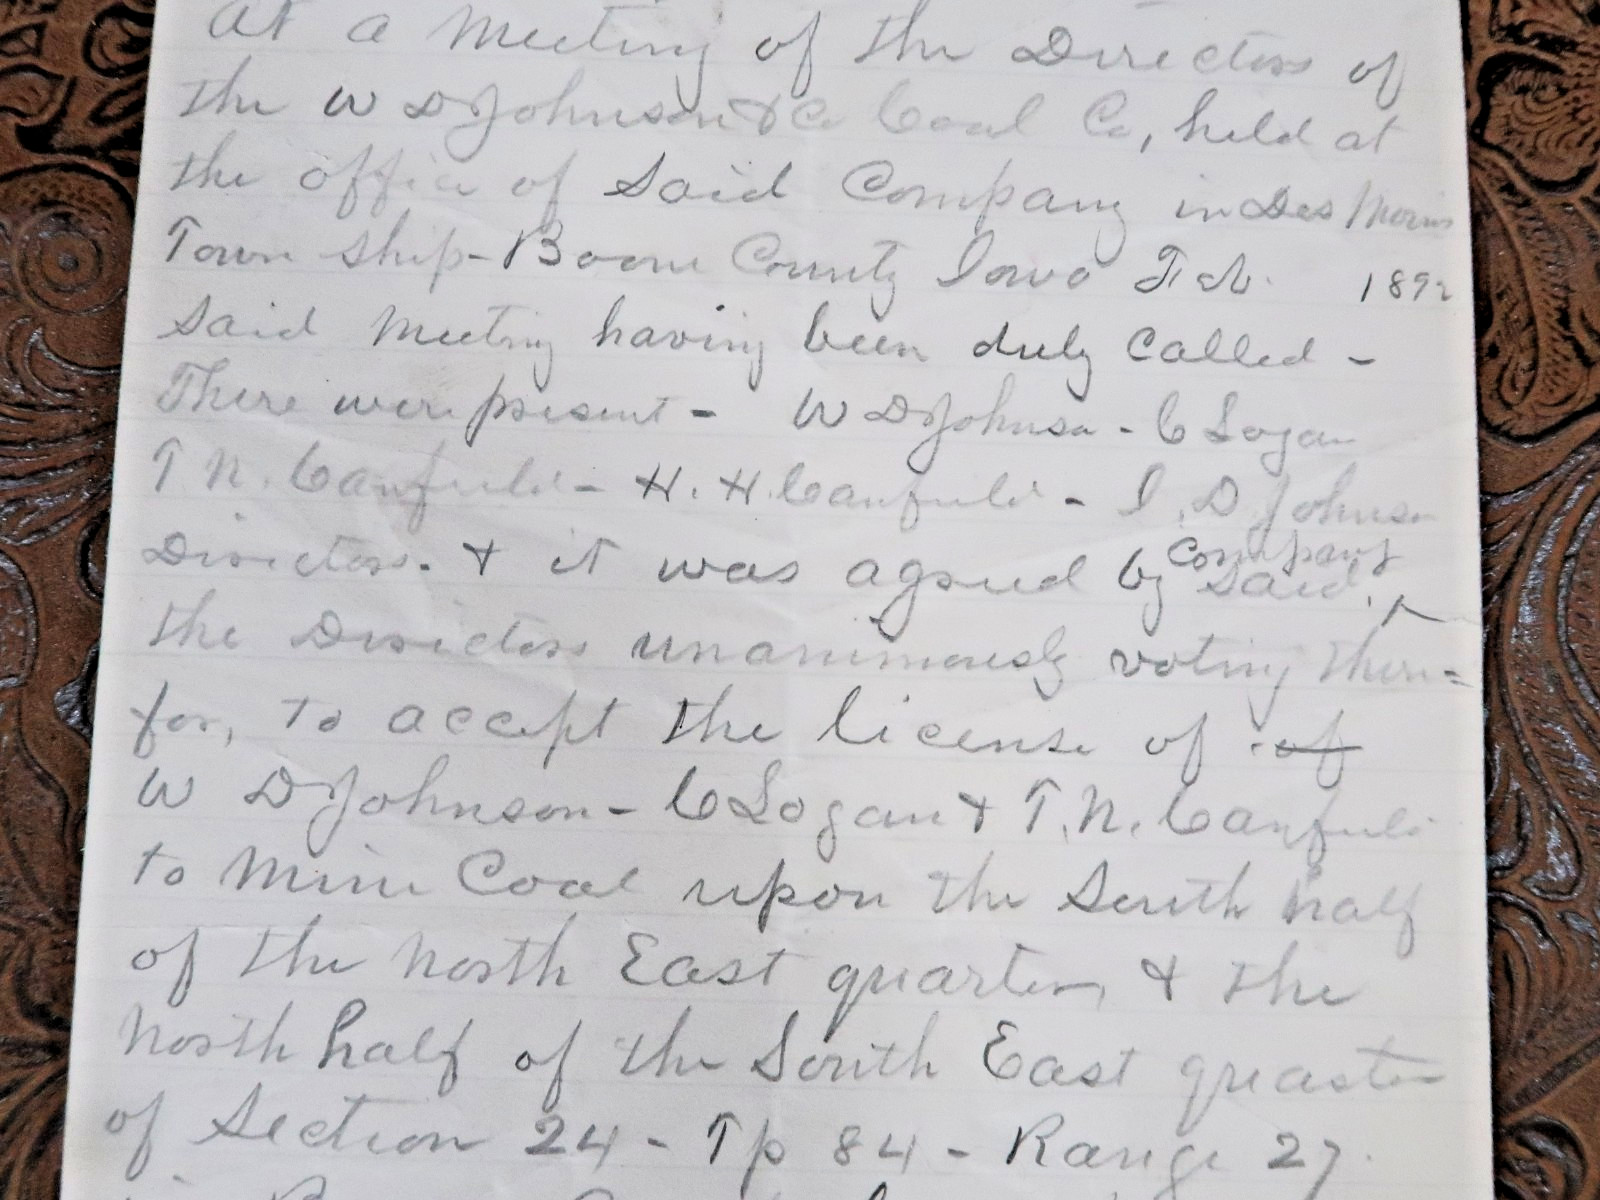 At a Meeting of the Directors of
the W D Johnson & Co Coal Co, held at
the office of said Company in Des Moines
Town ship - Boone County Iowa Feb. 1892
said Meeting having been duly called -
There were present - W D Johnson - C Logan
T. N. Canfield - H. H. Canfield - I. D. Johnson
Directors. & it was agreed by said Company
the Directors unanimously voting there=
for, to accept the license of of
W D Johnson - C Logan & T. N. Canfield
to Mine Coal upon the South half
of the North East quarter, & the
North half of the South East quarter
of Section 24 - Tp 84 - Range 27.